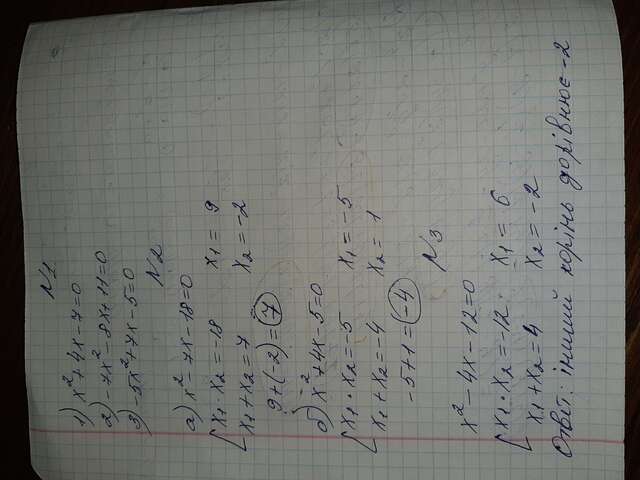 N1
1) x² + 4x - 7 = 0
2) -7x² - 8x + 11 = 0
3) -5x² + 7x - 5 = 0
N2
а) x² - 7x - 18 = 0
{ x₁ · x₂ = -18 x₁ = 9
x₁ + x₂ = 7 x₂ = -2
9 + (-2) = 7
б) x² + 4x - 5 = 0
{ x₁ · x₂ = -5 x₁ = -5
x₁ + x₂ = -4 x₂ = 1
-5 + 1 = -4
N3
x² - 4x - 12 = 0
{ x₁ · x₂ = -12 x₁ = 6
x₁ + x₂ = 4 x₂ = -2
Ответ: інший корінь дорівнює -2